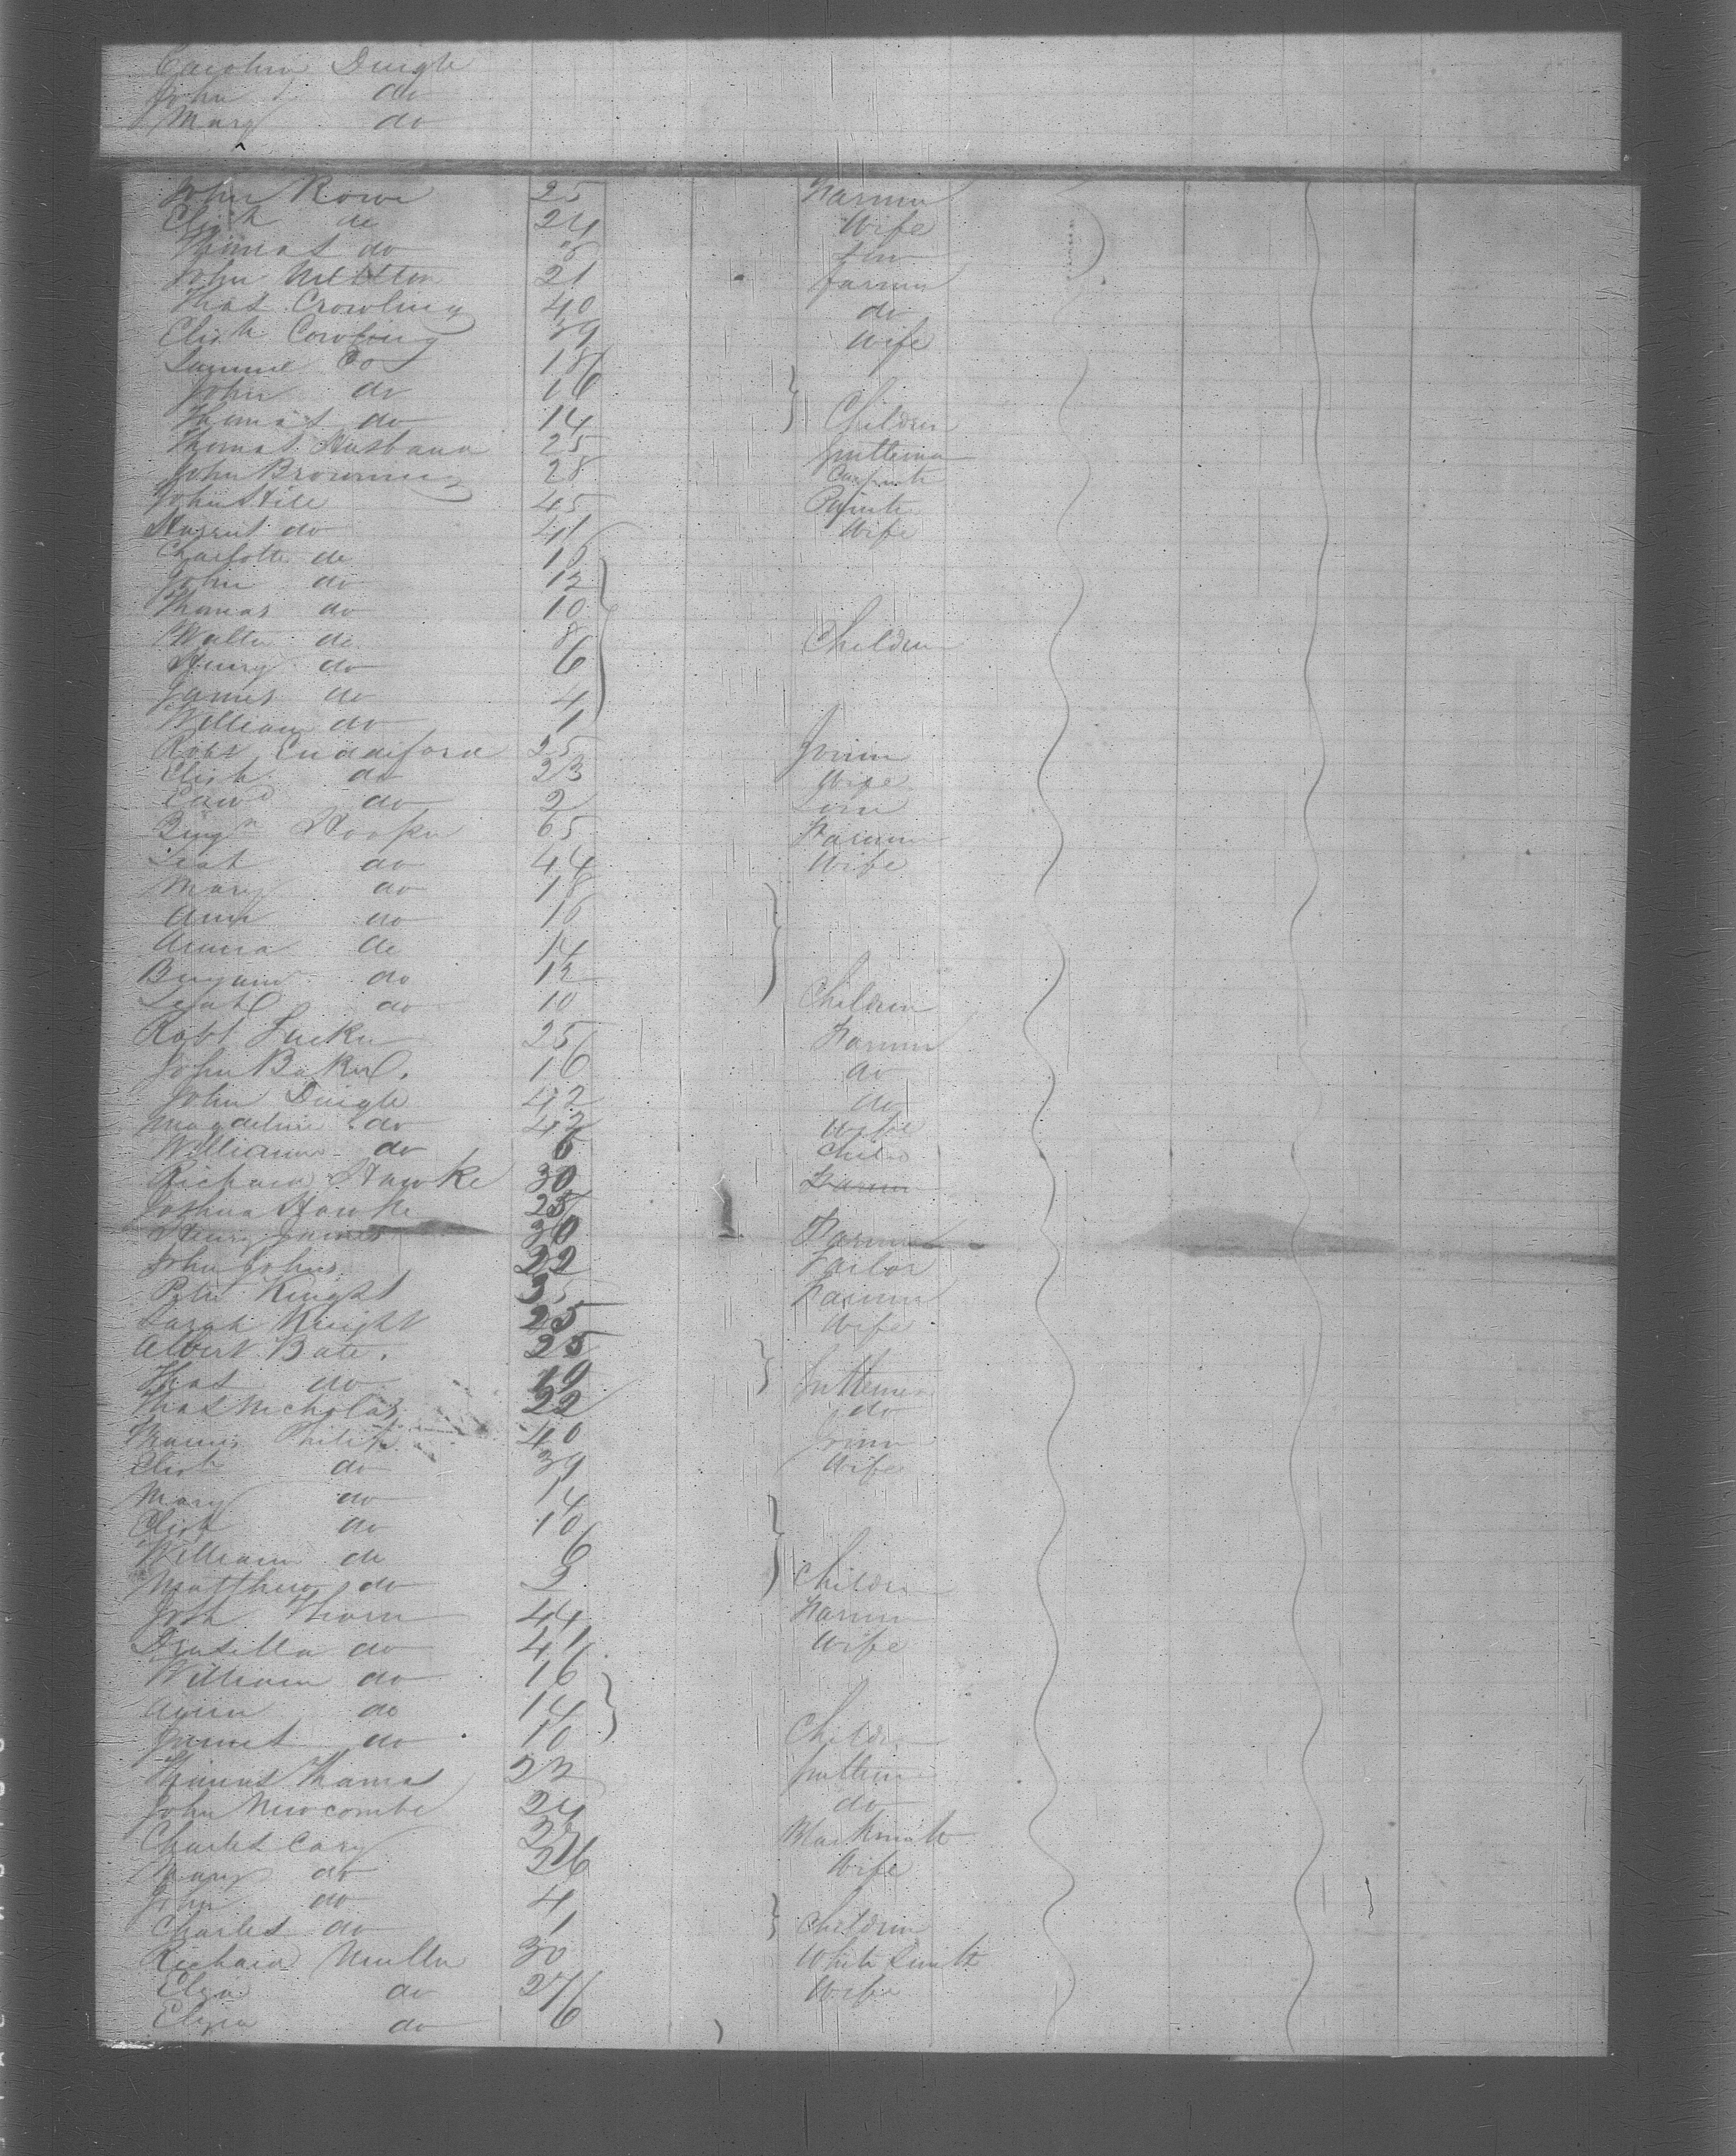 Caroline Dingle
John do
Mary do
John Rowe 25 Farmer
Elizth do 24 Wife
Thomas do 5 Son
John 21 Farmer
Thos Crowling 40 do
Elizth Cowling 39 Wife
Samuel Do 18
John do 16
Thomas do 14 Children
Thomas Husband 25 Gentleman
John Browning 28 Carpenter
John Hill 45 Painter
Harriet do 41 Wife
Charlotte do 15
John do 12
Thomas do 10
Walter do 8 Children
Henry do 6
James do 4
William do 1
Robt Cuddiford 25 Joiner
Elizh do 23 Wife
Edwd do 2 Son
Benjn Hooper 65 Farmer
Leah do 44 Wife
Mary do 18
Ann do 16
do 14
Benjamin do 12
Leah do 10 Children
Robt 25 Farmer
John Baker. 16 do
John Dingle 42 do
Magdeline do 42 Wife
William do 6 Child
Richard Hawke 30 Farmer
Joshua Hawke 25
Henry James 30 Farmer
John Johns 22 Tailor
Peter Knight 35 Farmer
Sarah Knight 25 Wife
Albert Bate. 25
Thos do 19 Gentlemen
Thos Nicholas 22 do
Philip 40 Joiner
Elizh do 39 Wife
Mary do 14
Elizh do 10
William do 6
Matthew do 3 Children
Joth Thorn 44 Farmer
Drusilla do 41 Wife
William do 16
Ann do 14
James do 10 Children
Thomas Thomas 22 Gentleman
John Newcombe 24 do
Charles Cary 27 Blacksmith
Mary do 26 Wife
John do 4
Charles do 1 Children
Richard Muller 30 White Smith
Eliza do 27 Wife
Eliza do 6